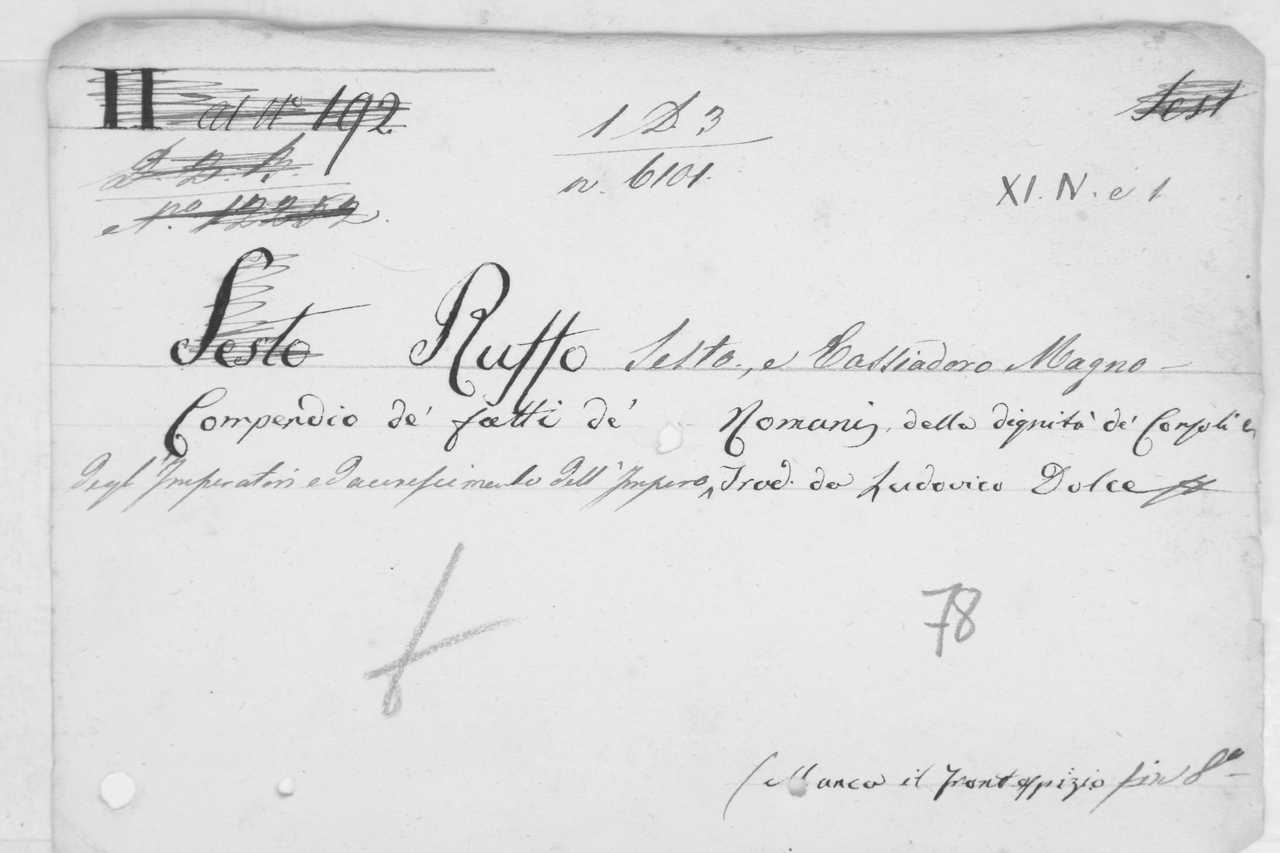 II al N° 192
1 D 3
Sest
D. D. R.
n. 6101.
XI. N. e 1
N.° 12252.
Sesto Ruffo Sesto, e Cassiadoro Magno -
Compendio de' fatti de' Romani, della dignità de' Consoli e
degl'Imperatori e d'accrescimento dell'Impero, Trad. da Ludovico Dolce
78
(Manca il Frontespizio) in 8° -